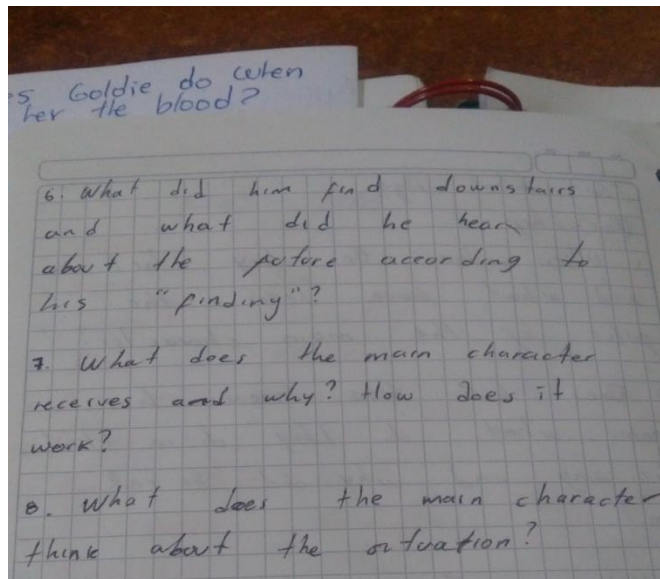 Goldie do when
her the blood?
6. What did him find downstairs
and what did he hear
about the future according to
his "finding"?
7. What does the main character
receives and why? How does it
work?
8. What does the main character
think about the situation?